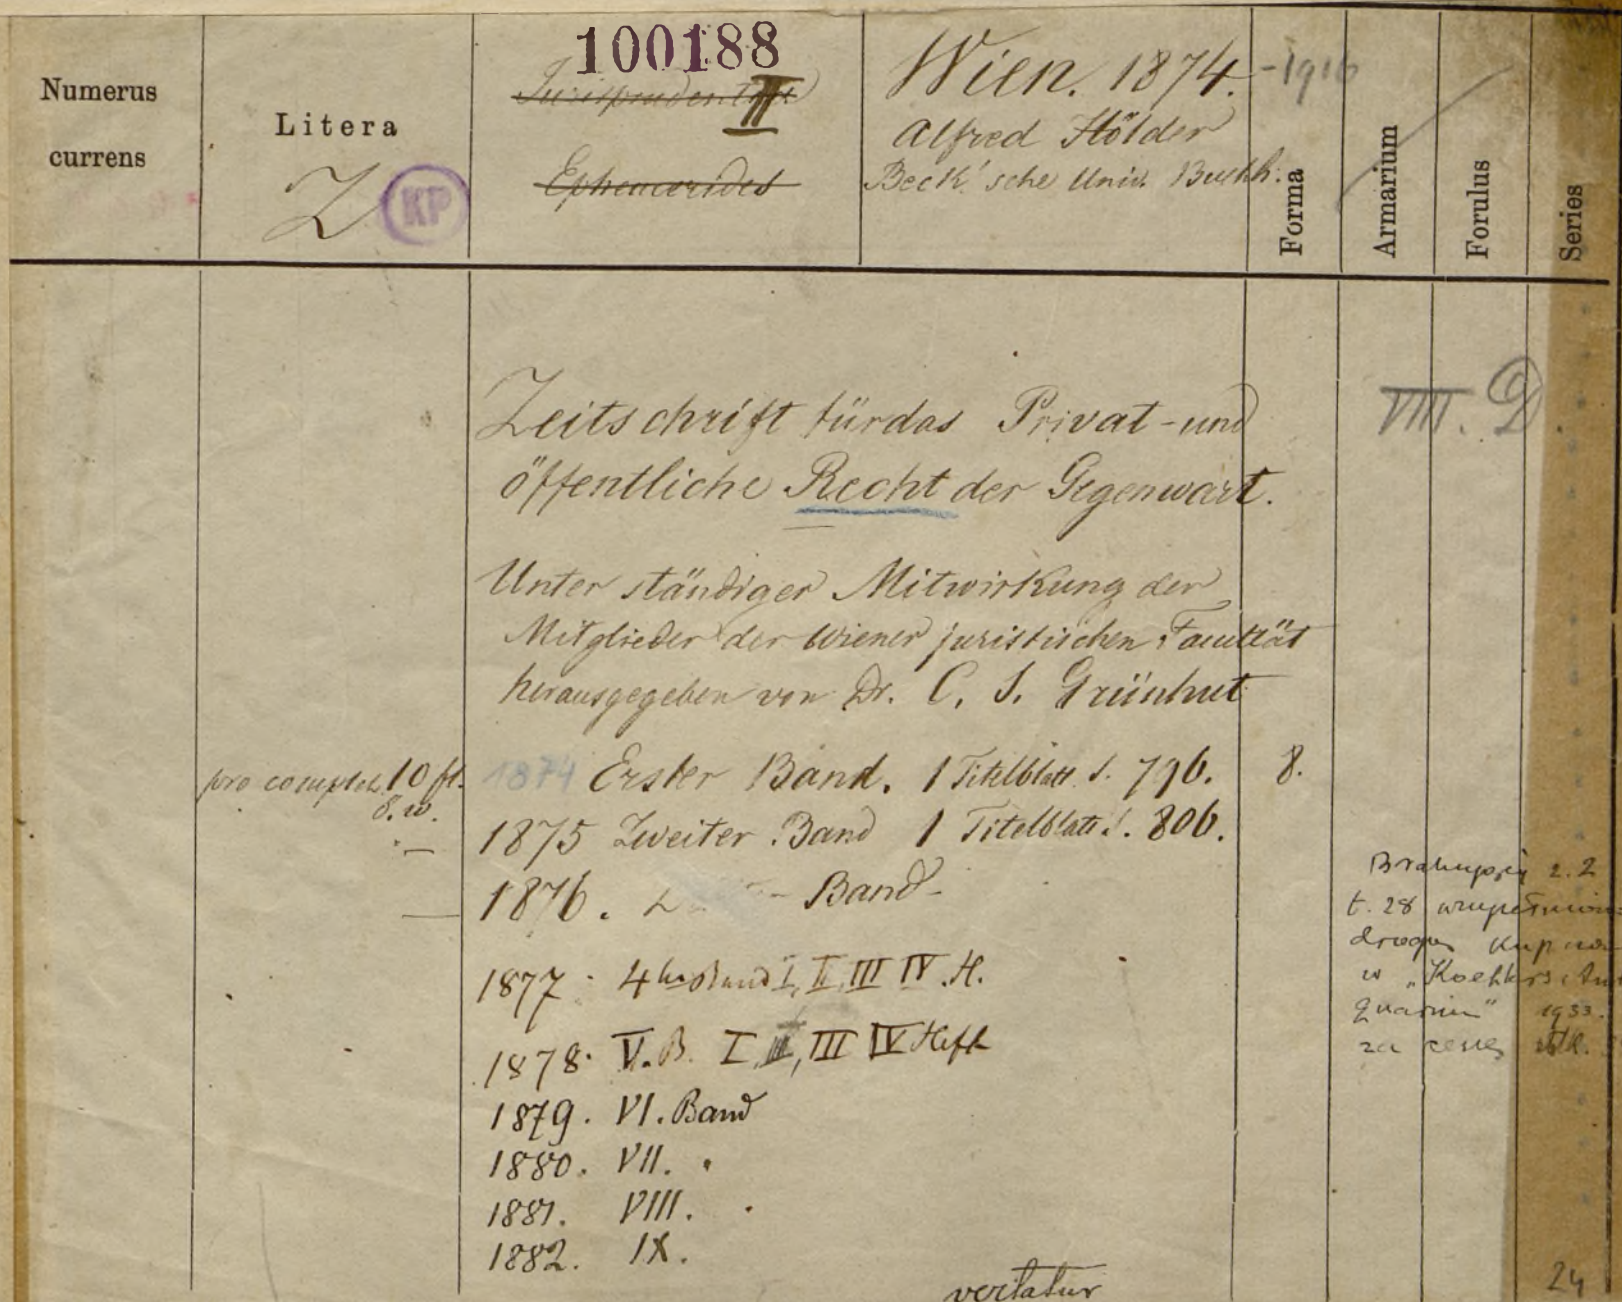 Numerus
currens
Litera
Z
KP
100188
Jurisprudentia
II
Ephemerides
Wien. 1874.-1916
Alfred Hölder
Beck'sche Univ. Buchh.
Forma
Armarium
Forulus
Series
VIII. D.
Zeitschrift für das Privat-und
öffentliche Recht der Gegenwart.
Unter ständiger Mitwirkung der
Mitglieder der Wiener juristischen Facultät
herausgegeben von Dr. C. S. Grünhut
pro complet. 10 fl.
ö. w.
1874 Erster Band. 1 Titelblatt S. 796. 8.
1875 Zweiter Band 1 Titelblatt S. 806.
1876. Band
1877 4ter Band I, II, III IV. H.
1878. V. B. I, II, III IV Heft
1879. VI. Band
1880. VII. "
1881. VIII. "
1882. IX.
vertatur
Brakujący z. 2
t. 28 uzupełniono
drogą kupna
w „Koehlers Anti
quarium" 1933.
za cenę
24